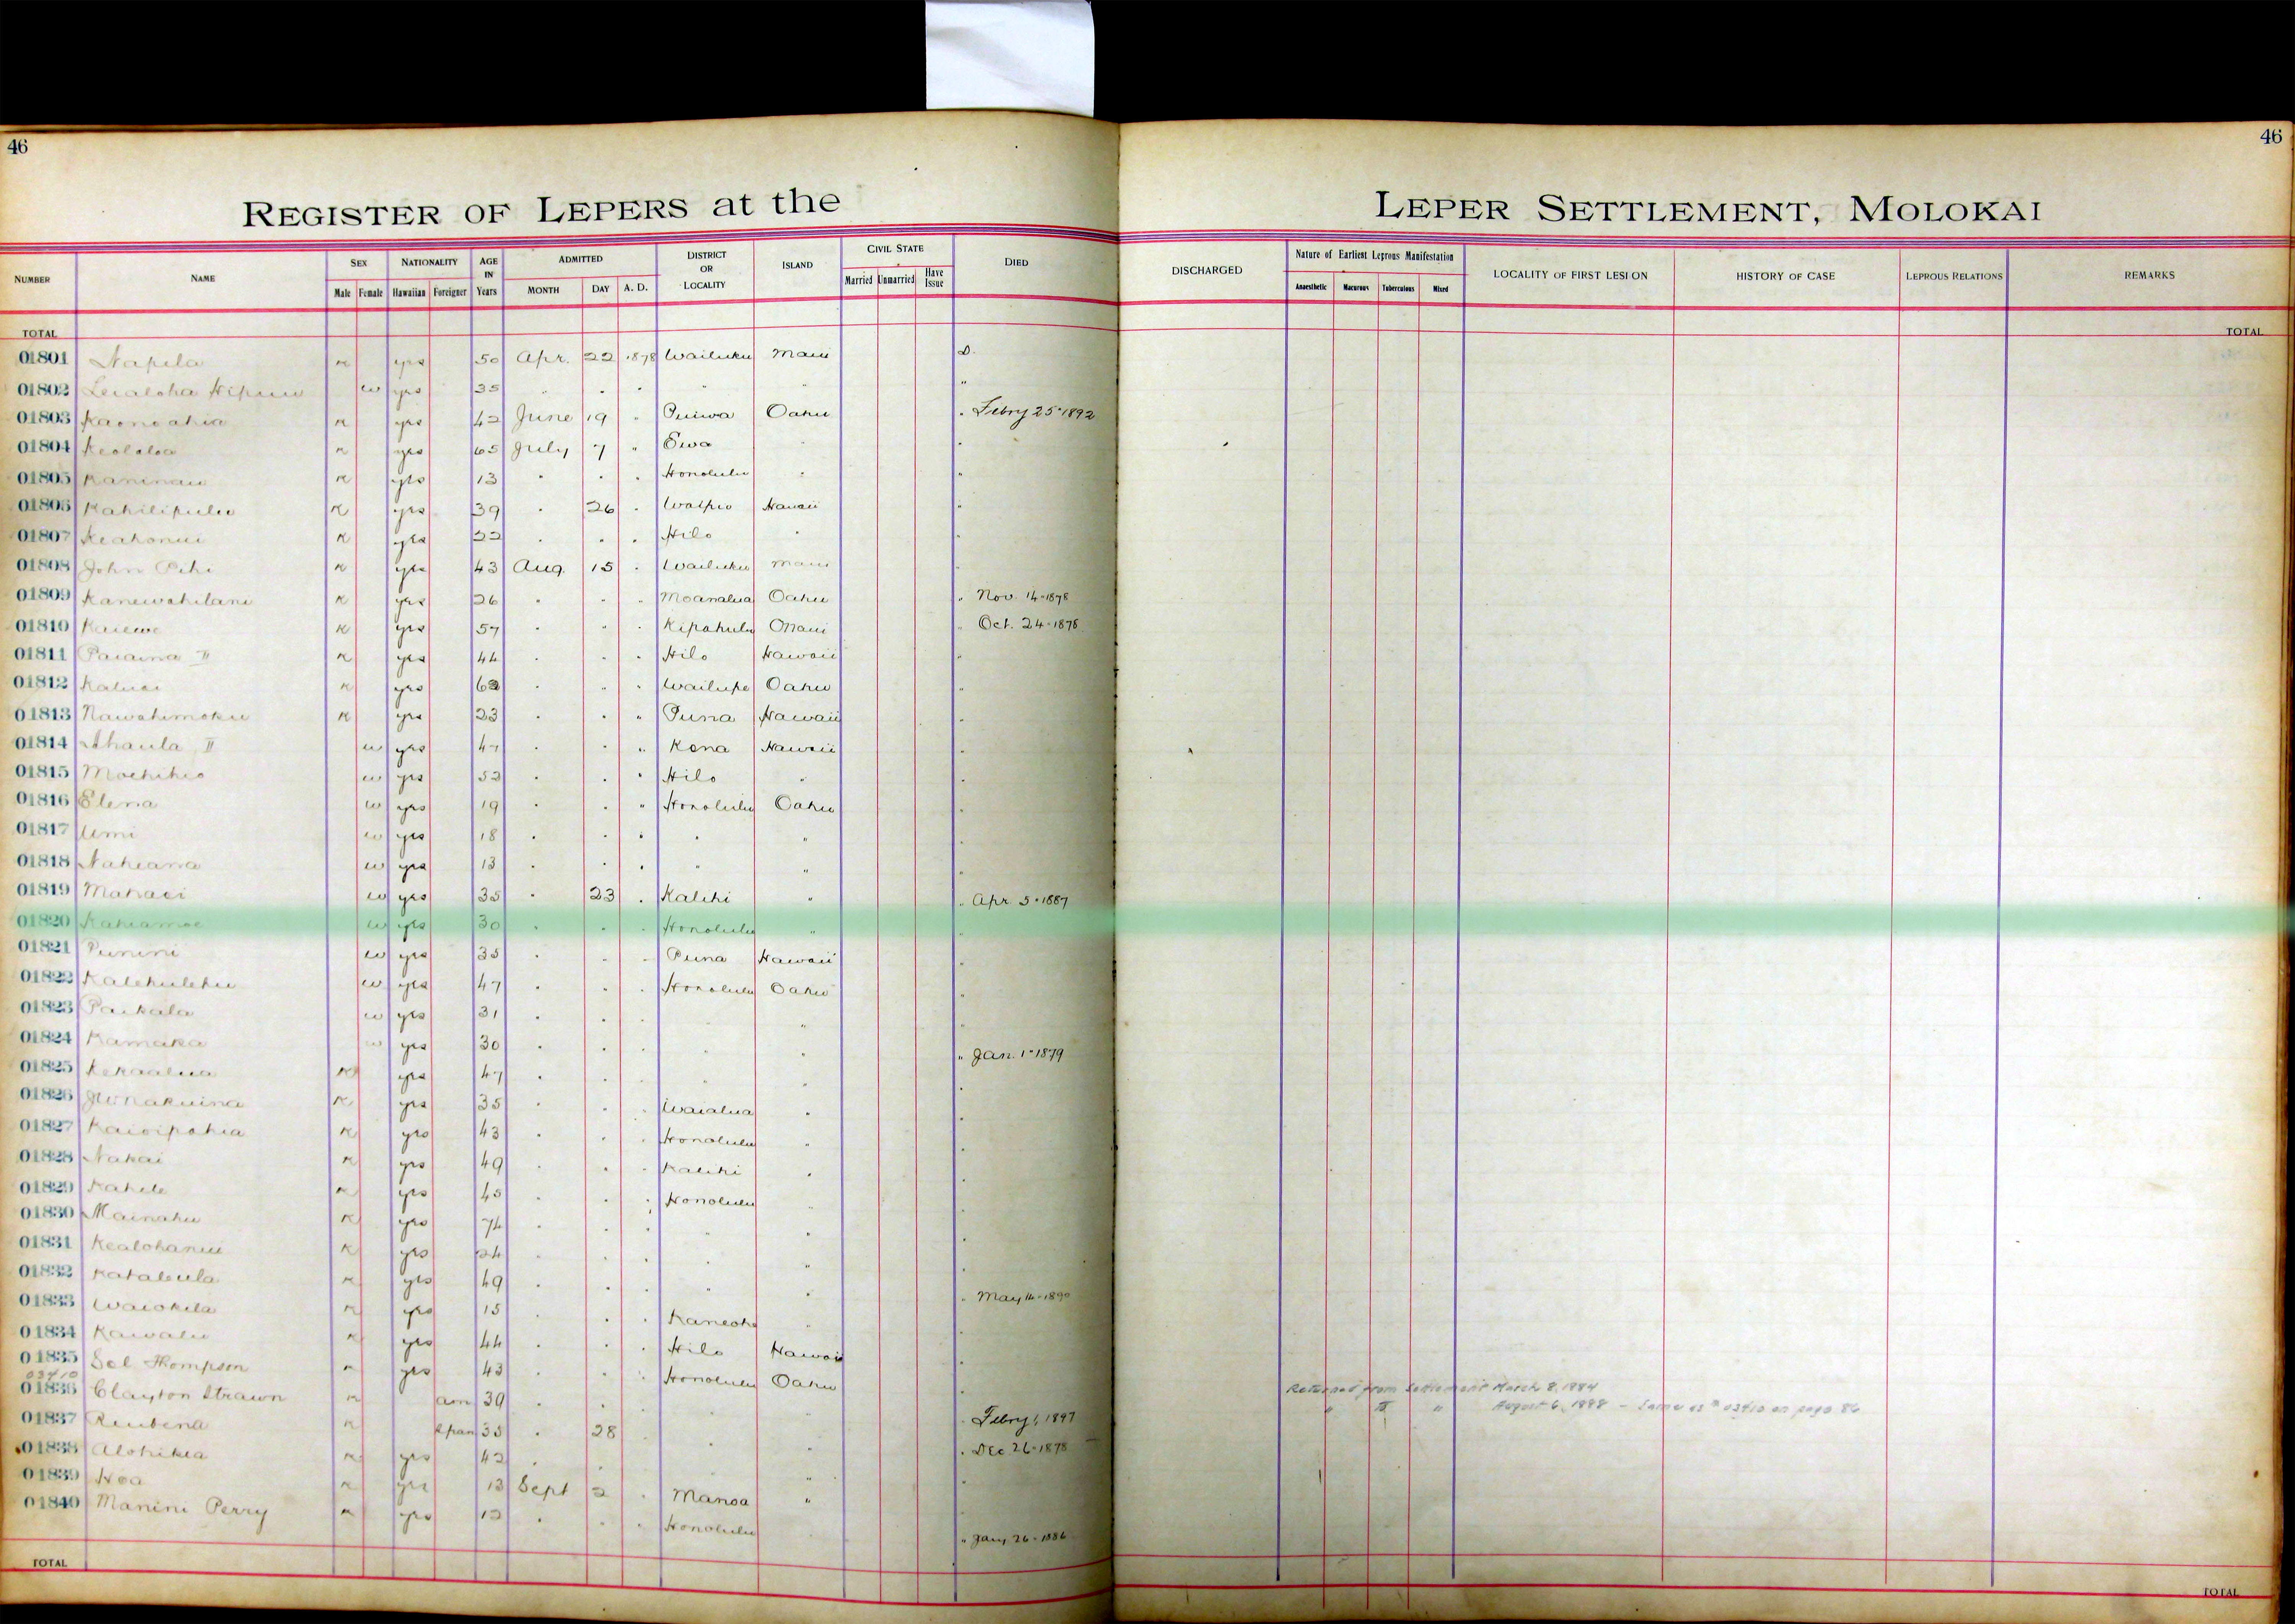 46
46
REGISTER OF LEPERS at the LEPER SETTLEMENT, MOLOKAI
NUMBER NAME SEX Male Female NATIONALITY Hawaiian Foreigner AGE IN Years ADMITTED MONTH DAY A. D. DISTRICT OR LOCALITY ISLAND CIVIL STATE Married Unmarried Have Issue DIED DISCHARGED Nature of Earliest Leprous Manifestation Anaesthetic Macurous Tuberculous Mixed LOCALITY OF FIRST LESION HISTORY OF CASE LEPROUS RELATIONS REMARKS
TOTAL TOTAL
01801 Napela yes 50 Apr. 22 1878 Wailuku Maui D.
01802 Leialoha Hipuu w yes 35 " " " " " "
01803 Kaonoahia yes 42 June 19 " Puiwa Oahu " Febry 25-1892
01804 Keololoa yes 65 July 7 " Ewa " "
01805 Kaninau yes 13 " " " Honolulu " "
01806 Kahilipulu yes 39 " 26 " Waipio Hawaii "
01807 Keahonui yes 22 " " " Hilo " "
01808 John yes 43 Aug. 15 " Wailuku Maui "
01809 Kanewahilani yes 26 " " " Moanalua Oahu " Nov. 14-1878
01810 Kaiewe yes 57 " " " Kipahulu Maui " Oct. 24-1878
01811 Paiaina II yes 44 " " " Hilo Hawaii "
01812 Kaluai yes " " " Wailupe Oahu "
01813 Nawahimoku yes 23 " " " Puna Hawaii "
01814 Ahaula II w yes 47 " " " Kona Hawaii "
01815 w yes 52 " " " Hilo " "
01816 Elena w yes 19 " " " Honolulu Oahu "
01817 Umi w yes 18 " " " " " "
01818 Naheana w yes 13 " " " " " "
01819 Mahaei w yes 35 " 23 " Kalihi " " Apr. 5-1887
01820 Kahiamoe w yes 30 " " " Honolulu " "
01821 Punini w yes 35 " " " Puna Hawaii "
01822 Kalehulehu w yes 47 " " " Honolulu Oahu "
01823 Paikala w yes 31 " " " " "
01824 Kamaka w yes 30 " " " " " " Jan. 1-1879
01825 Kekaalua yes 47 " " " " " "
01826 yes 35 " " " Waialua " "
01827 Kaioipahia yes 43 " " " Honolulu " "
01828 Nakai yes 49 " " " Kalihi " "
01829 Kahele yes 45 " " " Honolulu " "
01830 Mainahu yes 74 " " " " " "
01831 Kealohanui yes 24 " " " " " "
01832 Kataleula yes 49 " " " " " " May 14-1890
01833 Waiohila yes 15 " " " Kaneohe " "
01834 Kawalu yes 44 " " " Hilo Hawaii "
01835 Sol Thompson yes 43 " " " Honolulu Oahu "
03410
01836 Clayton Strawn am 39 " " " " " " Febry 1, 1897 Returned from Settlement March 8, 1884
" " " August 6, 1888 - Same as # 03410 on page 86
01837 Reubena Span 35 " 28 " " " " Dec 26-1878
01838 Alohikea yes 42 " " " "
01839 Hoa yes 13 Sept 2 " Manoa "
01840 Manini Perry yes 12 " " " Honolulu " Jany 26-1886
TOTAL TOTAL